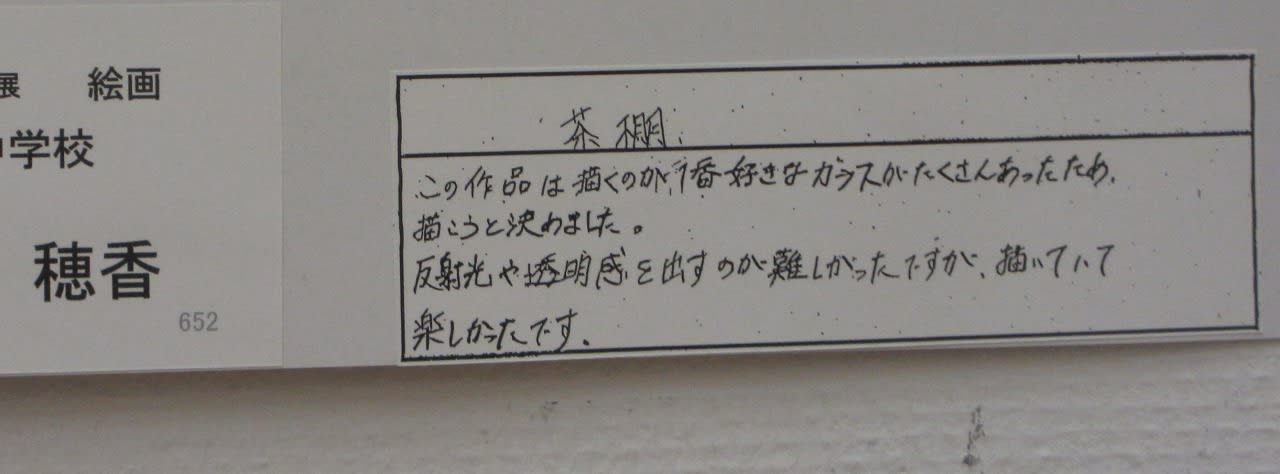 展 絵画
中学校
穂香
652
茶棚
この作品は描くのが1番好きなガラスがたくさんあったため、
描こうと決めました。
反射光や透明感を出すのが難しかったですが、描いていて
楽しかったです。